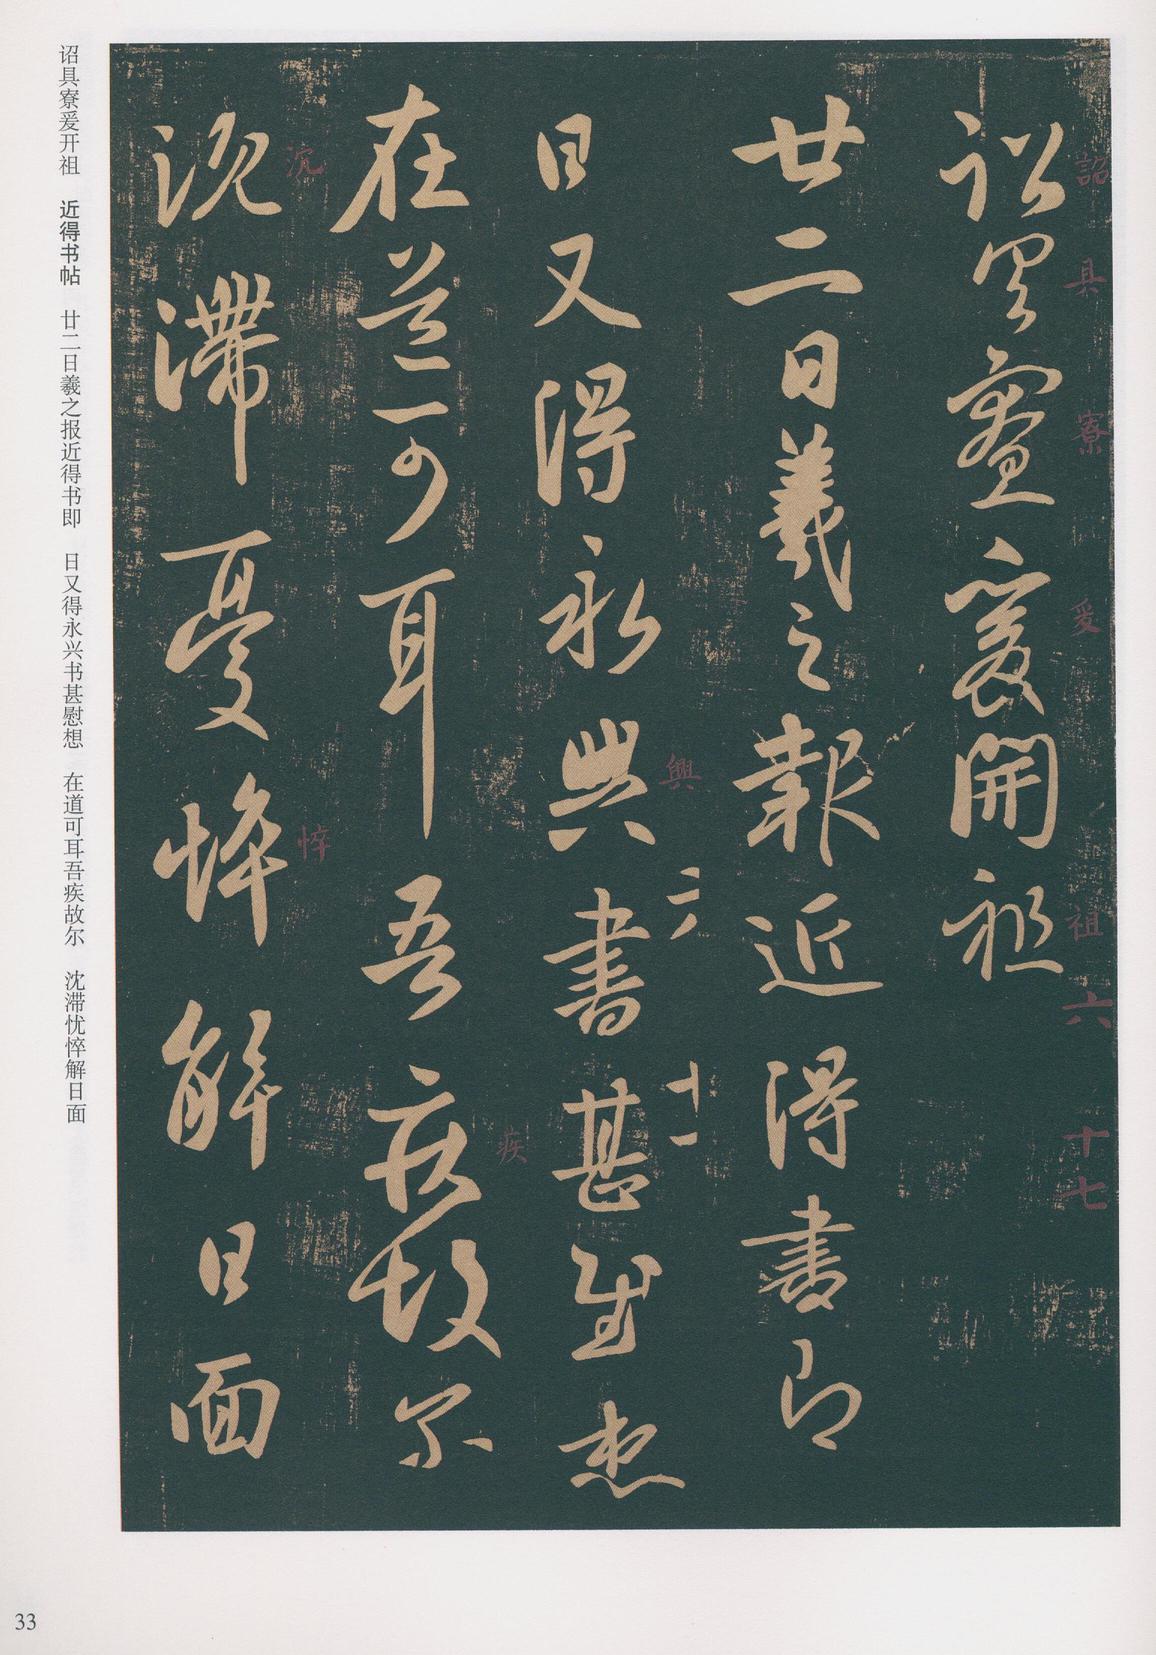 詔具寮爰開祖
廿二日羲之報近得書即
日又得永興書甚慰想
在道可耳吾疾故尔
沈滯憂悴解日面
詔
具
寮
爰
祖
六
十七
興
二六
十一
疾
沉
悴
诏具寮爰开祖 近得书帖 廿二日羲之报近得书即 日又得永兴书甚慰想 在道可耳吾疾故尔 沈滞忧悴解日面
33